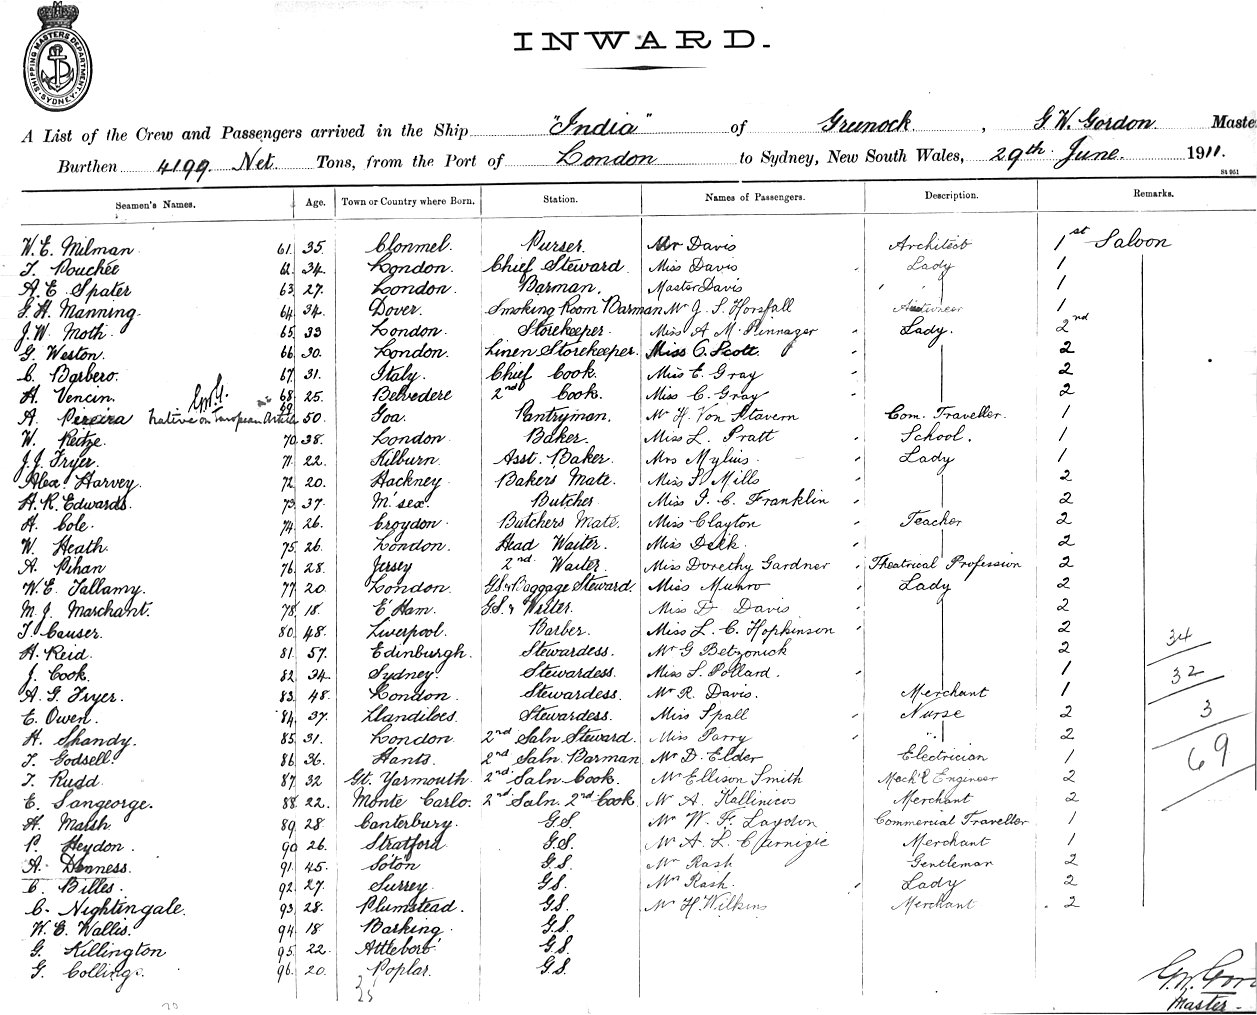 SHIPPING MASTERS DEPARTMENT SYDNEY
INWARD.
A List of the Crew and Passengers arrived in the Ship "India" of Greenock, G. W. Gordon Maste
Burthen 4199 Net. Tons, from the Port of London to Sydney, New South Wales, 29th June. 1911.
St 951
Seamen's Names. Age. Town or Country where Born. Station. Names of Passengers. Description. Remarks.
W. E. Milman 61 35 Clonmel. Purser Mr Davis Architect 1st Saloon
T. Pouchée 62 34 London. Chief Steward Miss Davis Lady 1
A. E. Spater 63 27 London. Barman. Master Davis " " 1
G. H. Manning 64 34 Dover. Smoking Room Barman Mr J. S. Horsfall 1
J. W. Moth 65 33 London. Storekeeper. Miss A M Pinnager Lady. 2nd
G. Weston. 66 30 London. Linen Storekeeper. Miss C. Scott. 2
C. Barbero. 67 31 Italy. Chief Cook Miss E. Gray 2
H. Vencin. 68 25 Belvedere 2nd Cook. Miss C. Gray 2
A. Pereira Native on European Articles G.W.G. 69 50 Goa. Pantryman. Mr H. Von Stavern Com. Traveller. 1
W. Reitze 70 38 London. Baker. Miss L. Pratt School. 1
J. J. Fryer. 71 22 Kilburn. Asst. Baker. Mrs Mylius. Lady 1
Alex. Harvey. 72 20 Hackney Bakers Mate. Miss S. Mills 2
H. R. Edwards. 73 37 M'sex. Butcher Miss I. C. Franklin 2
H. Cole. 74 26 Croydon. Butchers Mate. Miss Clayton Teacher 2
W. Heath. 75 26 London. Head Waiter. Miss Delk. 2
A. Pihan 76 28 Jersey 2nd Waiter. Miss Dorethy Gardner Theatrical Profession 2
W. E. Tallamy. 77 20 London. GS & Baggage Steward. Miss Munro Lady 2
M. J. Marchant. 78 18 E'Ham. GS. & Writer. Miss D Davis 2
T. Causer. 80 48 Liverpool. Barber. Miss L. C. Hopkinson 2
H. Reid. 81 57 Edinburgh. Stewardess. Mr G Betzonick 2 34
J. Cook. 82 34 Sydney. Stewardess. Miss S. Pollard. 1 32
A. G. Fryer. 83 48 London. Stewardess. Mr R. Davis. Merchant 1
E. Owen. 84 37 Llandiloes. Stewardess. Miss Spall Nurse 2 3
H. Shandy. 85 31 London. 2nd Saln Steward. Miss Parry " 2
T. Godsell. 86 36 Hants. 2nd Saln. Barman. Mr D. Elder Electrician 1 69
T. Rudd 87 32 Gt. Yarmouth. 2nd Saln. Cook. Mr Ellison Smith Mech'l Engineer 2
E. Sangeorge. 88 22 Monte Carlo. 2nd Saln. 2nd Cook Mr A. Kallinicos Merchant 2
H. Marsh. 89 28 Canterbury. G.S. Mr W. F. Laydon Commercial Traveller 1
P. Heydon. 90 26 Stratford G.S. Mr A. L. Merchant 1
A. Denness. 91 45 So'ton GS. Mr Rash Gentleman 2
C. Billes. 92 27 Surrey. GS. Mrs Rash. Lady 2
C. Nightingale. 93 28 Plumstead. GS. Mr H. Wilkins Merchant 2
W. E. Wallis. 94 18 Barking. GS.
G. Killington 95 22 Attleboro' GS.
G. Collings. 96 20 Poplar. GS.
G. W. Gor
Master.